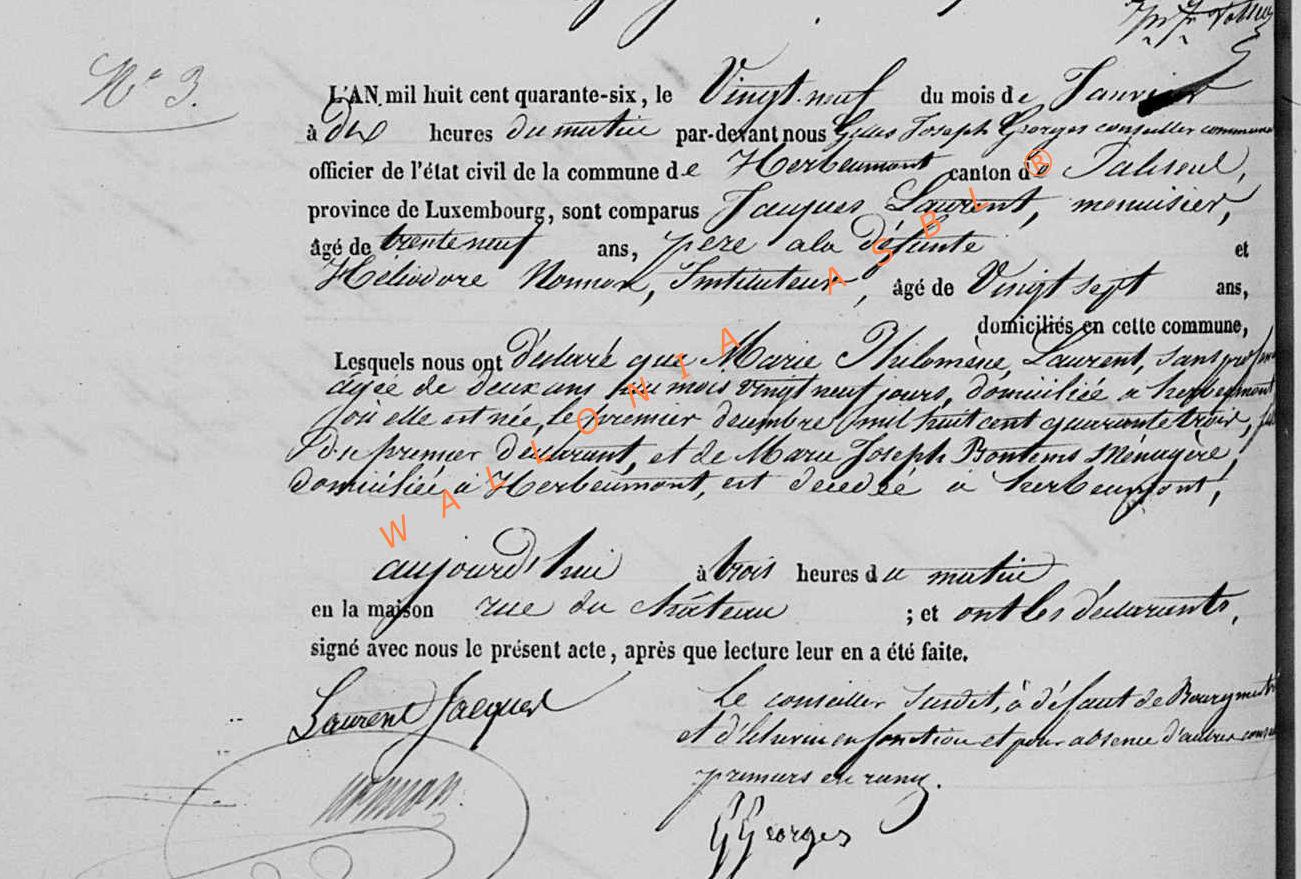 N° 3.
L'AN mil huit cent quarante-six, le Vingt neuf du mois de Janvier
à dix heures du matin par-devant nous Gilles Joseph Georges conseiller communal
officier de l'état civil de la commune de Herbeumont canton de Paliseul,
province de Luxembourg, sont comparus Jacques Laurent, menuisier,
âgé de trente neuf ans, père a la défunte et
Héliodore Nonnon, Instituteur, âgé de Vingt sept ans,
domiciliés en cette commune,
Lesquels nous ont déclaré que Marie Philomène, Laurent, sans
âgée de deux ans un mois vingt neuf jours, domiciliée a herbeumont
où elle est née, le premier decembre mil huit cent quarante trois,
du premier declarant, et de Marie Joseph Bontems Ménagère,
domiciliée à Herbeumont, est decedée à herbeumont,
aujourd'hui à trois heures du matin
en la maison rue du château ; et ont les déclarants,
signé avec nous le présent acte, après que lecture leur en a été faite.
Laurent Jacques
Le conseiller susdit, à défaut de Bourgmestre
et d'Echevin en fonction et pour absence d'autres
premiers en rang.
nonnon
G Georges
WALLONIA ASBL ®